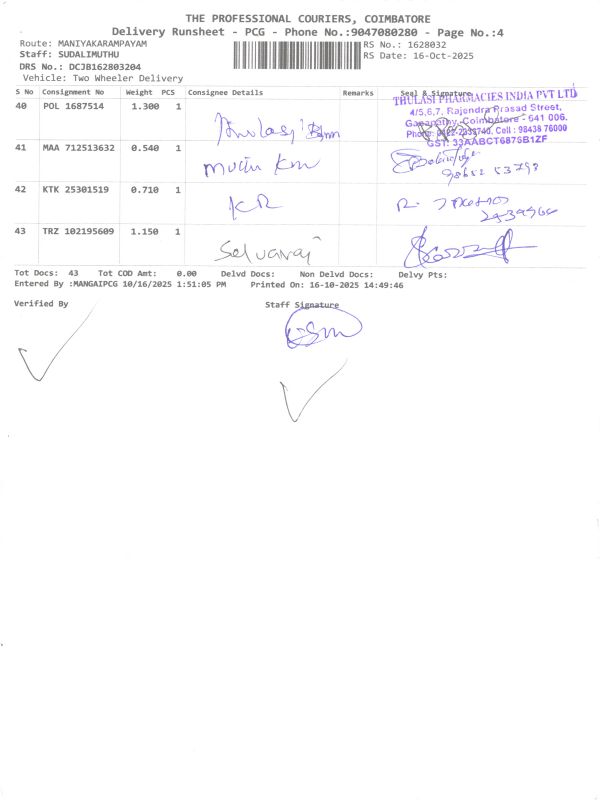 THE PROFESSIONAL COURIERS, COIMBATORE
Delivery Runsheet - PCG - Phone No.:9047080280 - Page No.:4
Route: MANIYAKARAMPAYAM
RS No.: 1628032
Staff: SUDALIMUTHU
RS Date: 16-Oct-2025
DRS No.: DCJB162803204
Vehicle: Two Wheeler Delivery
S No Consignment No Weight PCS Consignee Details Remarks Seal & Signature
40 POL 1687514 1.300 1
THULASI PHARMACIES INDIA PVT LTD
4/5,6,7, Rajendra Prasad Street,
Ganapathy, Coimbatore - 641 006.
Phone: 0422-2333740, Cell : 98438 76000
GST: 33AABCT6876B1ZF
Thulasi
41 MAA 712513632 0.540 1
Muthu Km
42 KTK 25301519 0.710 1
KR
43 TRZ 102195609 1.150 1
Selvaraj
Tot Docs: 43 Tot COD Amt: 0.00 Delvd Docs: Non Delvd Docs: Delvy Pts:
Entered By :MANGAIPCG 10/16/2025 1:51:05 PM Printed On: 16-10-2025 14:49:46
Verified By Staff Signature